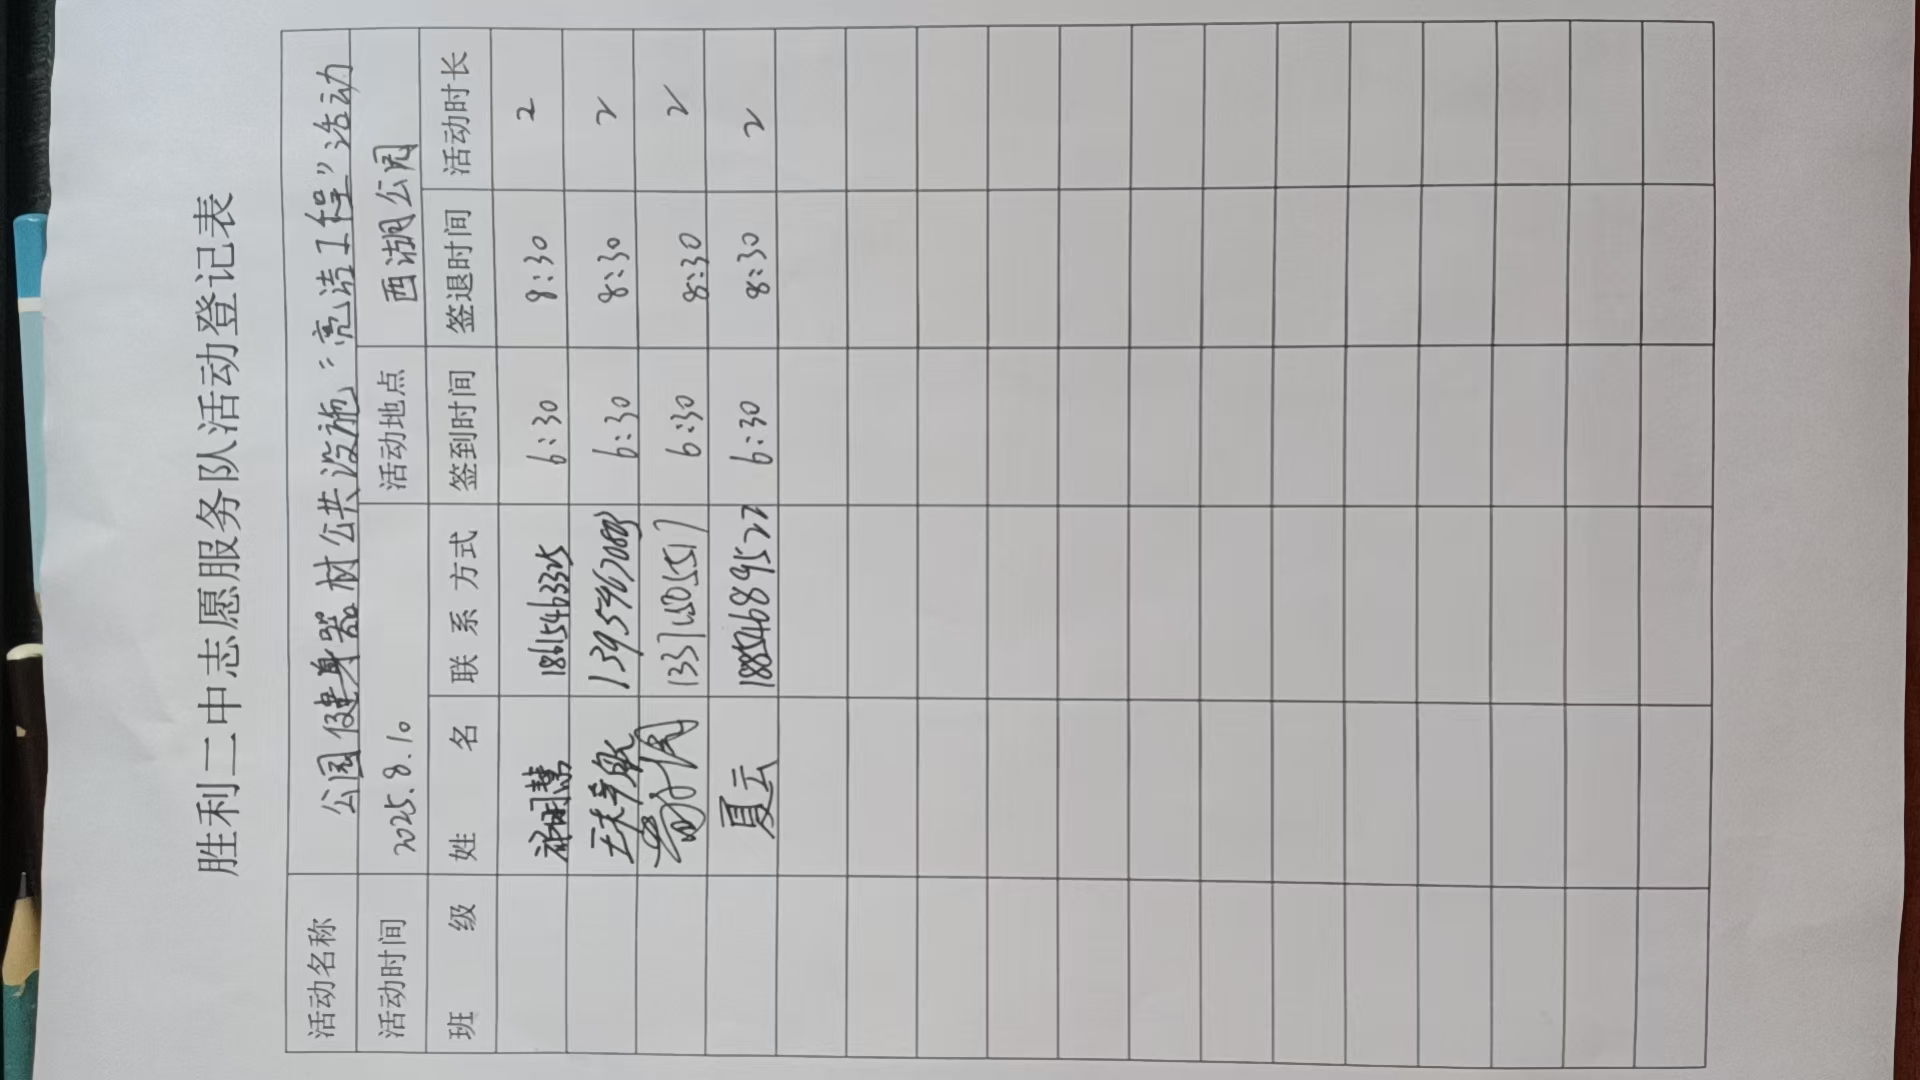 胜利二中志愿服务队活动登记表
活动名称 公园健身器材公共设施"亮洁工程"活动
活动时间 2025.8.10 活动地点 西湖公园
班 级 姓 名 联系方式 签到时间 签退时间 活动时长
18615463325 6:30 8:30 2
6:30 8:30 2
6:30 8:30 2
夏云 18854689522 6:30 8:30 2